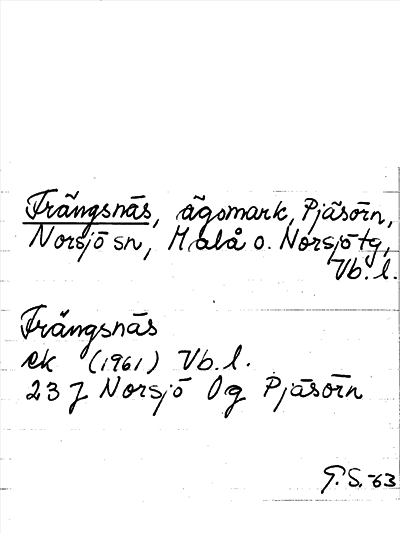 Frängsnäs, ägomark, Pjäsörn,
Norsjö sn, Malå o. Norsjö tg,
Vb. l.
Frängsnäs
ek (1961) Vb. l.
23 J Norsjö Og Pjäsörn
G. S. -63